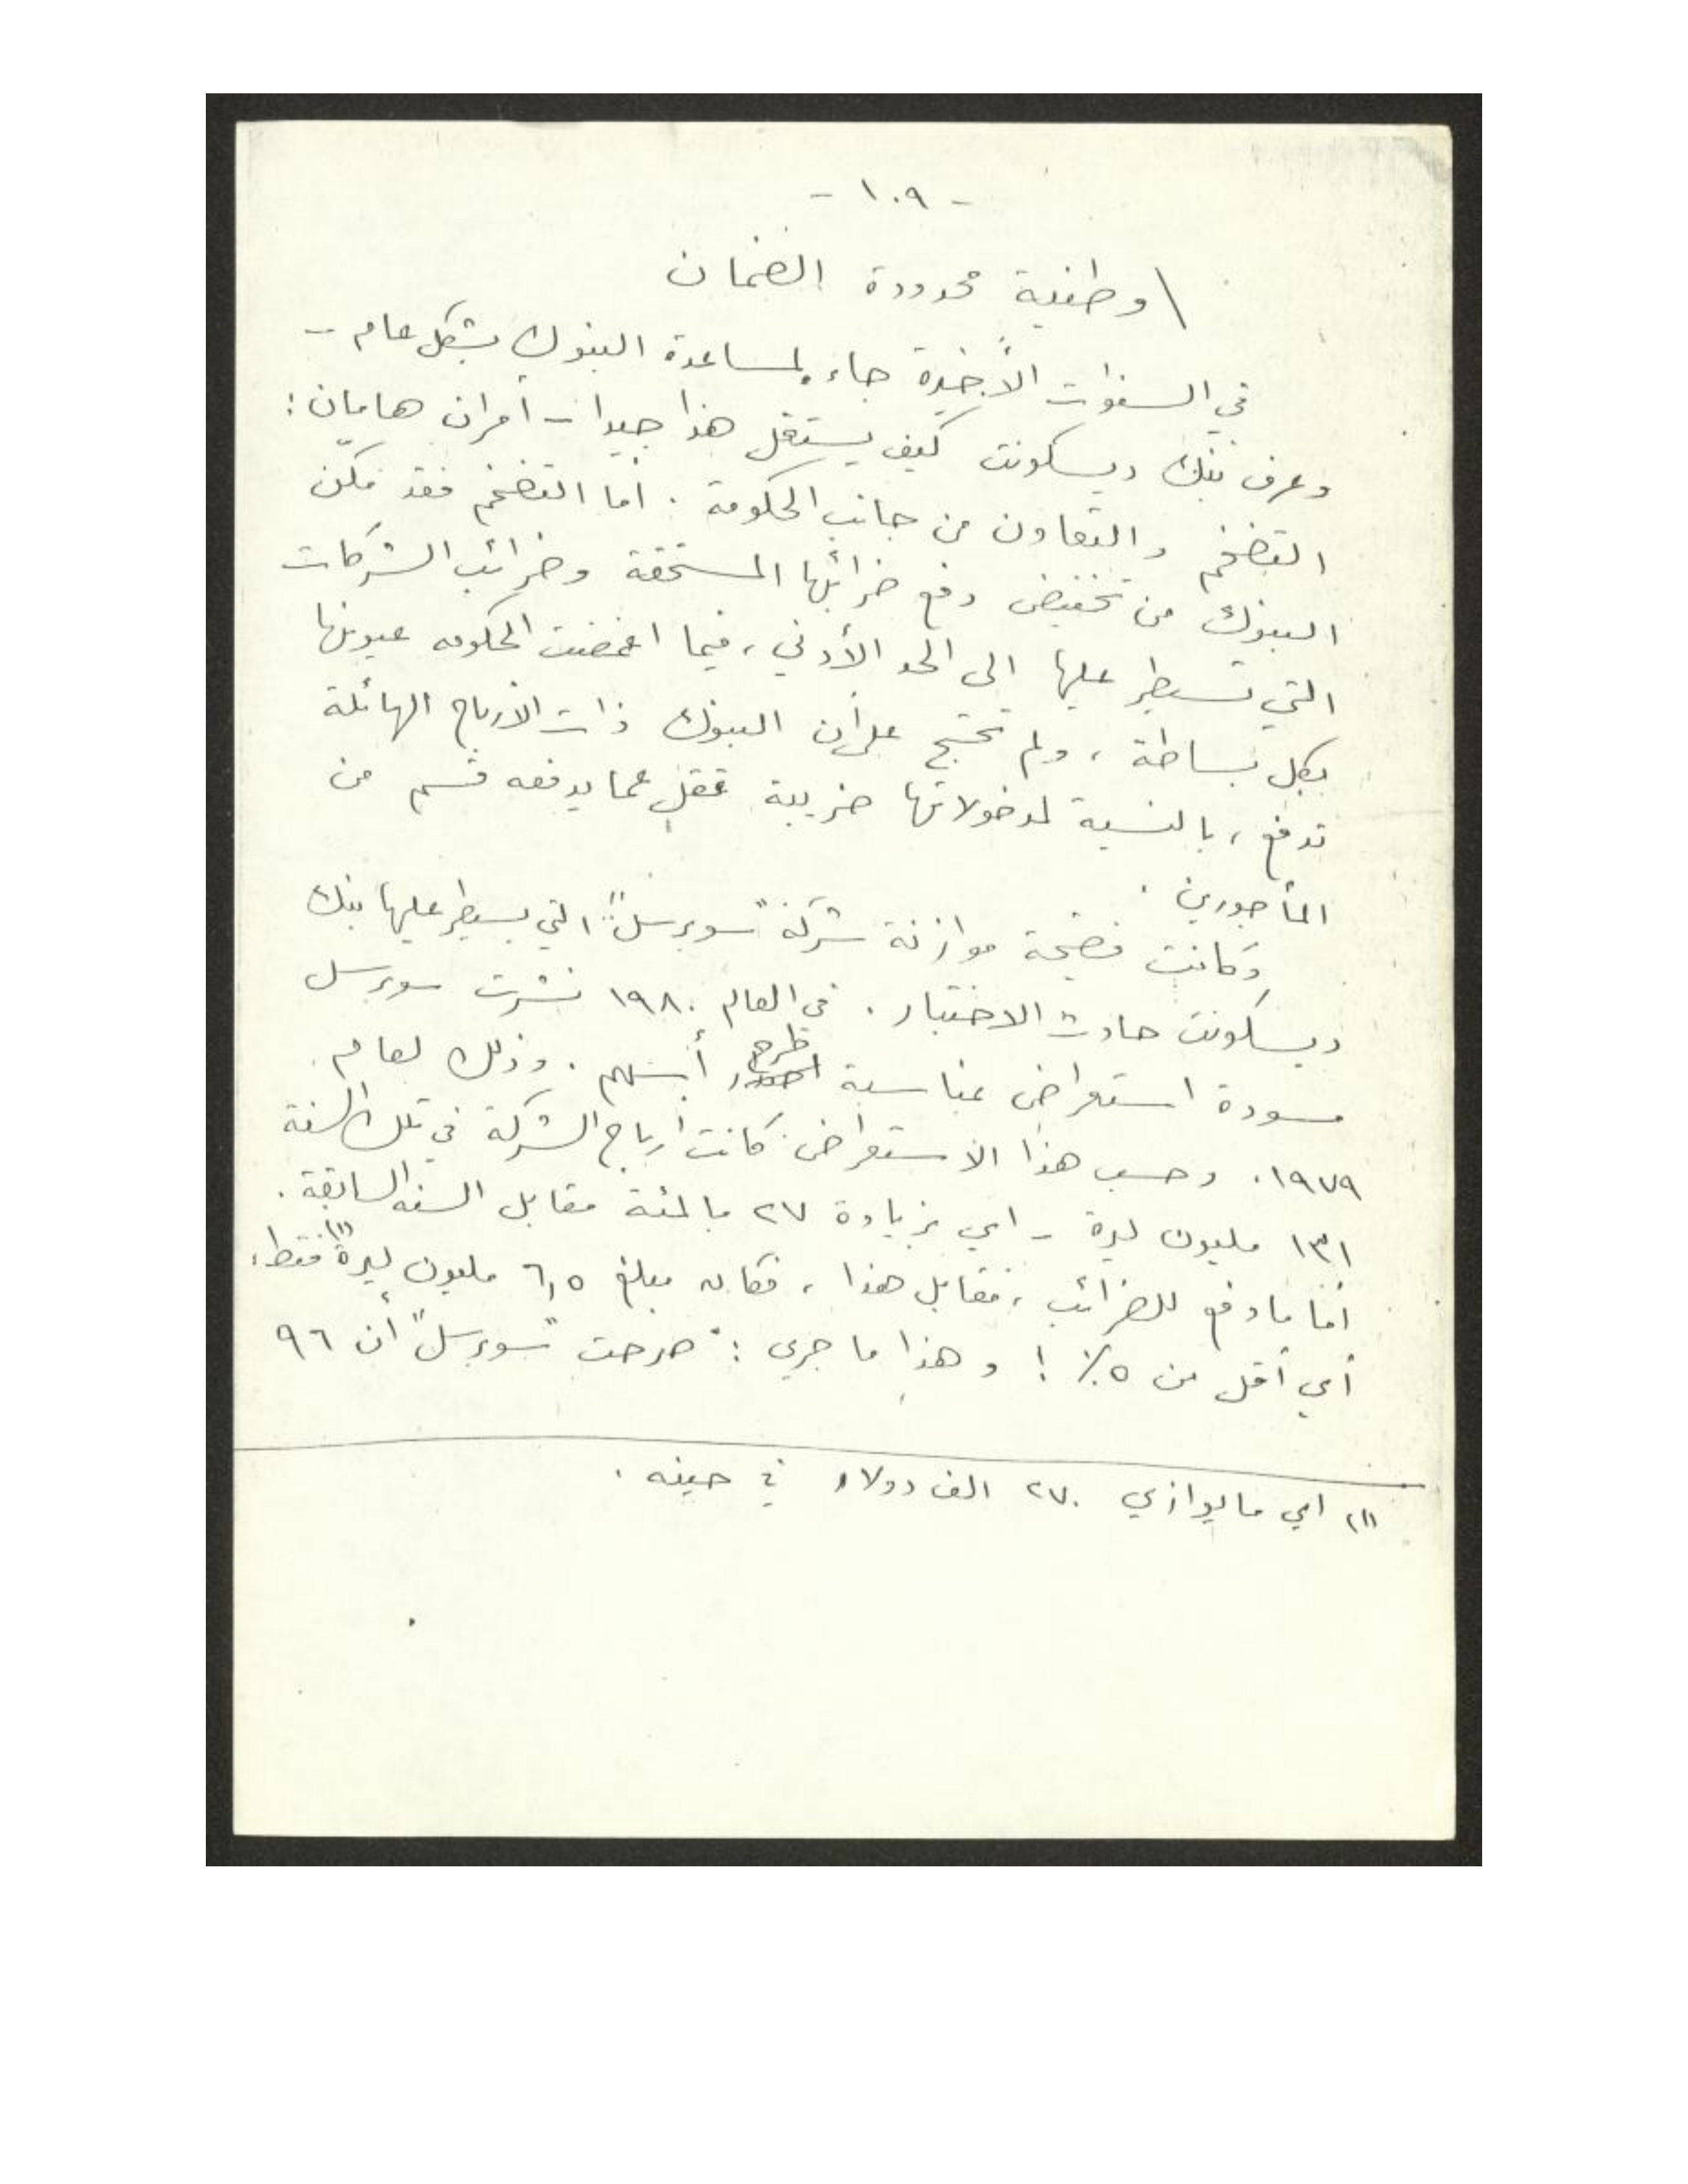 - ١٠٩ -
وطنية محدودة الضمان
في السنوات الأخيرة جاء لمساعدة البنوك بشكل عام -
وعرف بنك ديسكونت كيف يستغل هذا جيدا - أمران هامان:
التضخم والتعاون من جانب الحكومة. أما التضخم فقد مكّن
البنوك من تخفيض دفع ضرائبها المستحقة وضرائب الشركات
التي تسيطر عليها الى الحد الأدنى، فيما اغمضت الحكومه عيونها
بكل بساطة، ولم تحتج على أن البنوك ذات الأرباح الهائلة
تدفع، بالنسبة لمدخولاتها ضريبة تقل عما يدفعه قسم من
المأجورين.
وكانت فضيحة موازنة شركة "سوبرسل" التي يسيطر عليها بنك
ديسكونت حادث الاختبار. في العام ١٩٨٠ نشرت سوبرسل
مسودة استعراض بمناسبة طرح أسهم. وذلك لعام
١٩٧٩. وحسب هذا الاستعراض كانت ارباح الشركة في تلك السنة
١٣١ مليون ليرة - اي بزيادة ٢٧ بالمئة مقابل السنه السابقة.
أما ما دفع للضرائب، مقابل هذا، فكان مبلغ ٦,٥ مليون ليرة (١) فقط،
أي أقل من ٥٪! وهذا ما جرى: صرحت "سوبرسل" أن ٩٦
(١) اي ما يوازي ٢٧٠ الف دولار في حينه.